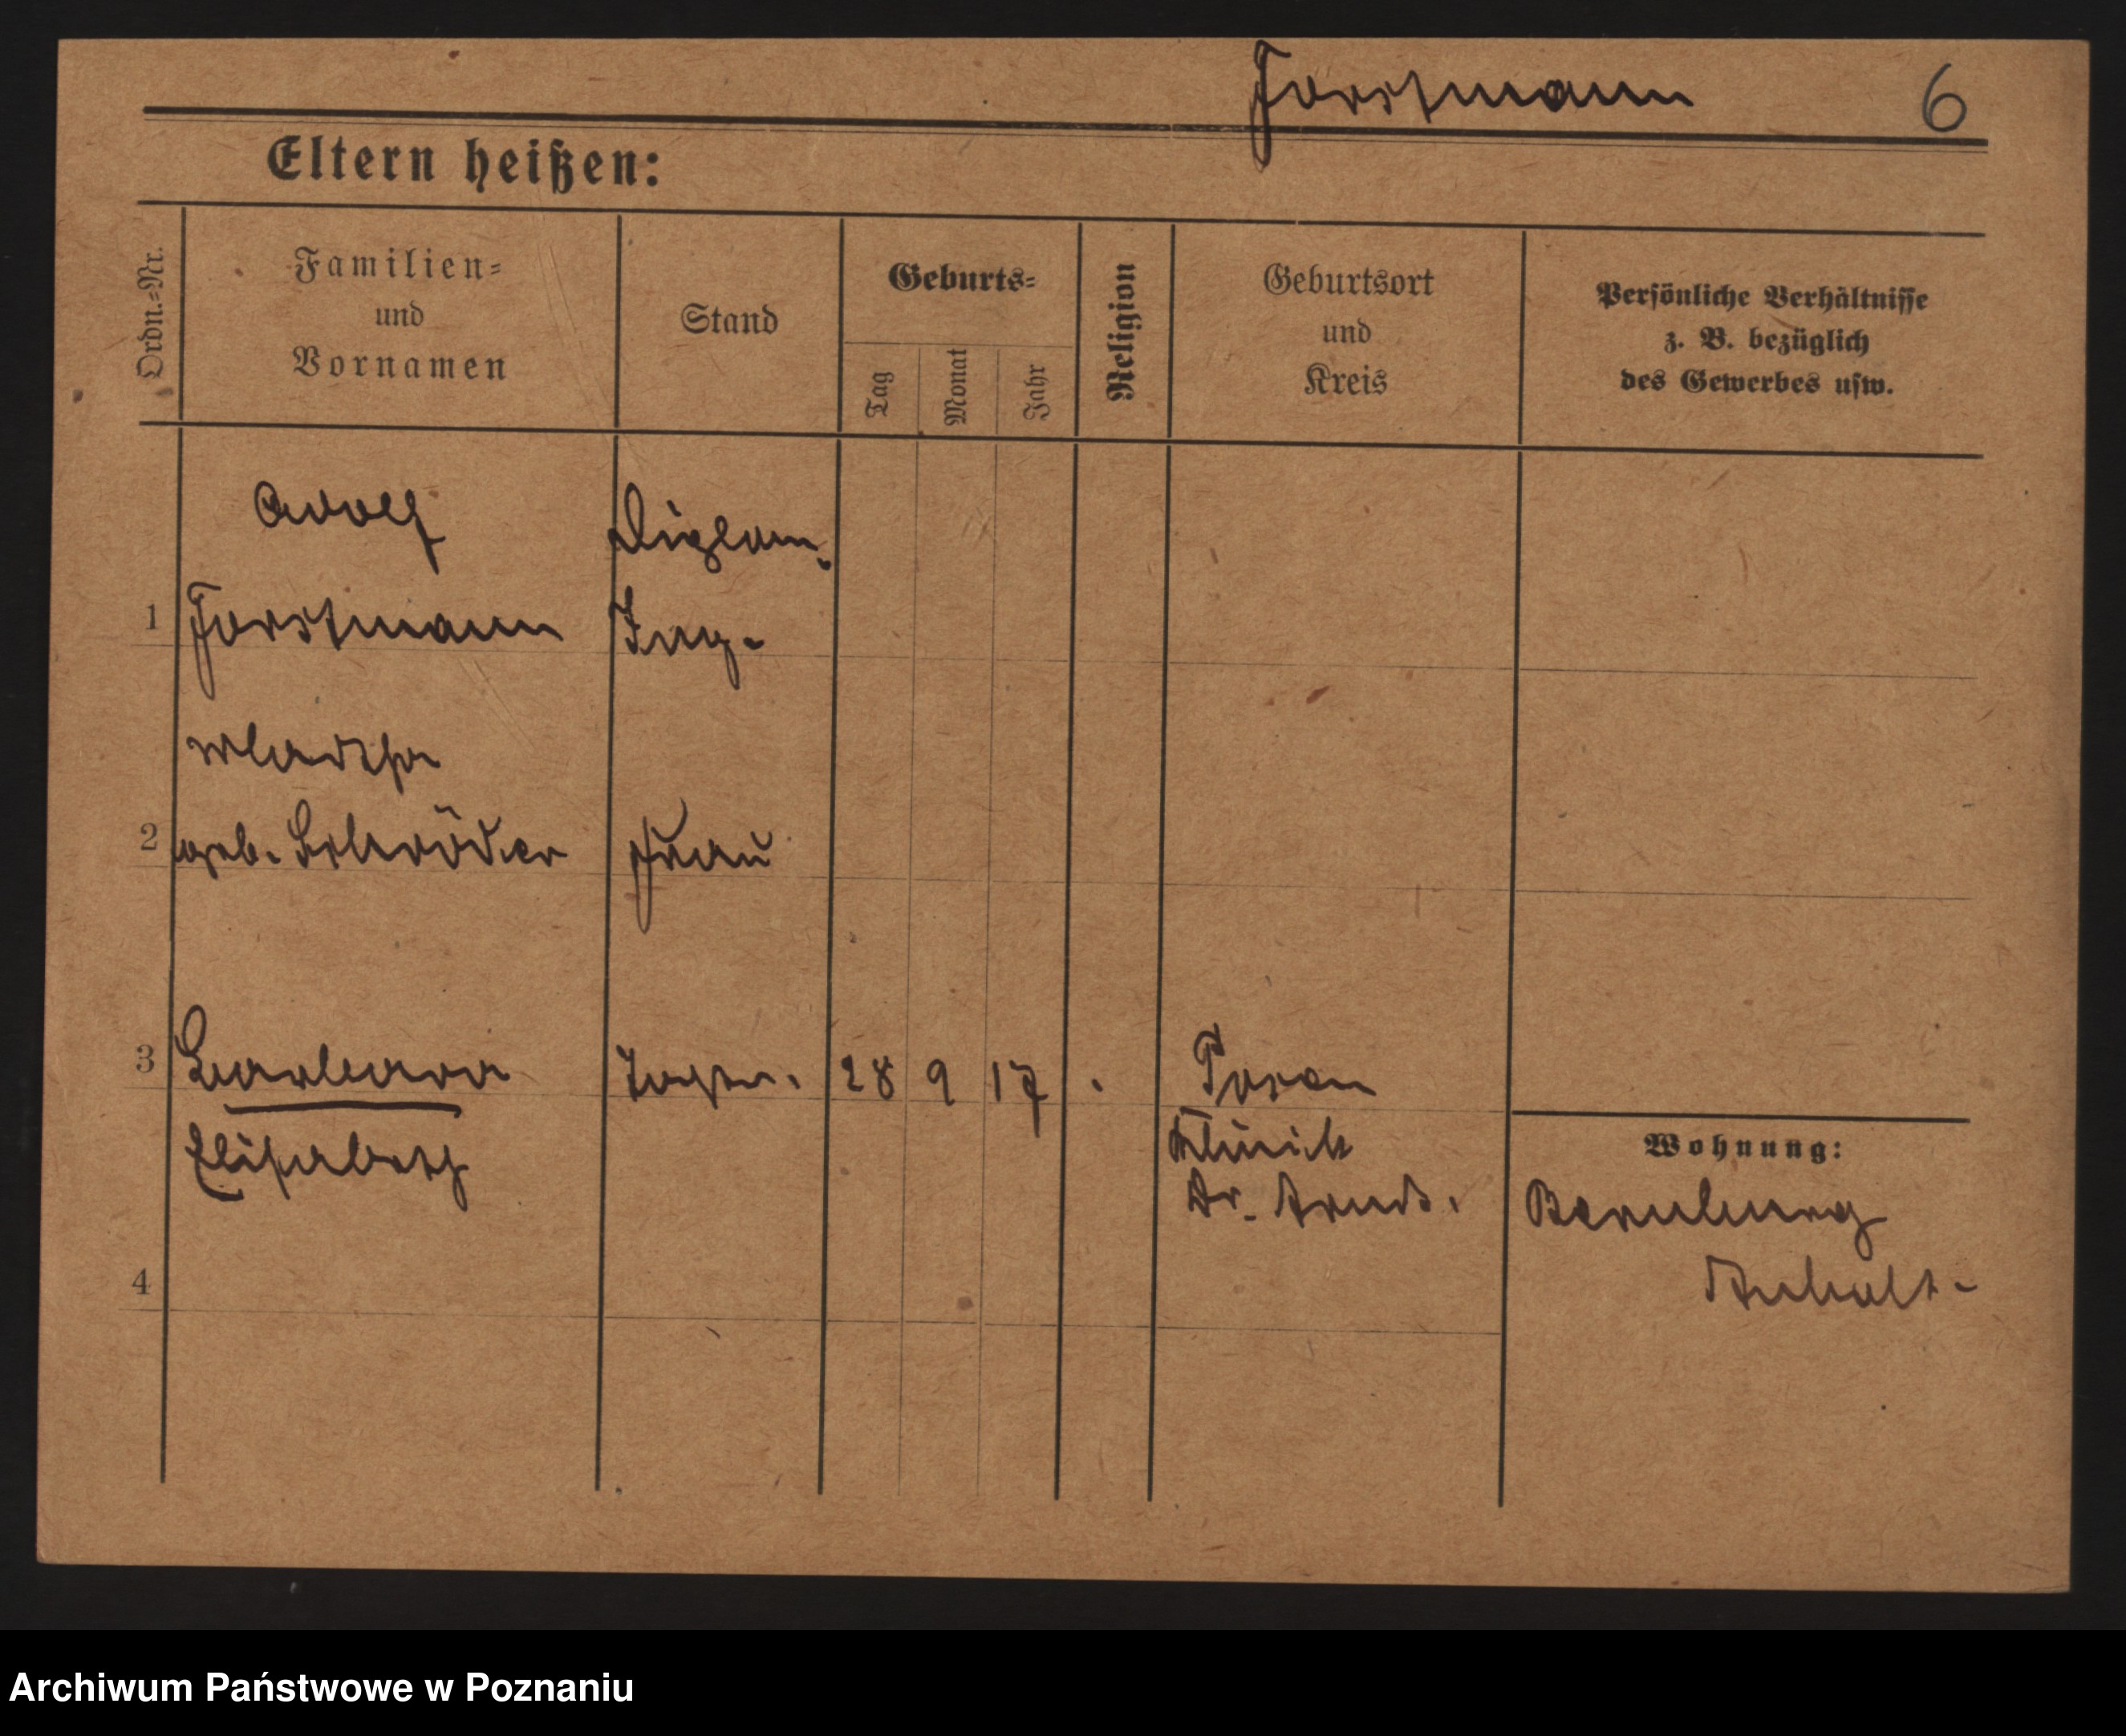 Forstmann 6
Eltern heißen:
Ordn.=Nr.
Familien=
und
Vornamen
Stand
Geburts=
Tag
Monat
Jahr
Religion
Geburtsort
und
Kreis
Persönliche Verhältnisse
z. B. bezüglich
des Gewerbes usw.
Adolf Diplom.
1 Forstmann Ing.
Martha
2 geb. Schröder Frau
3 Barbara 28 9 17 Posen
Elisabeth Klinik
Dr.
Wohnung:
Bernburg
4 Anhalt-
Archiwum Państwowe w Poznaniu